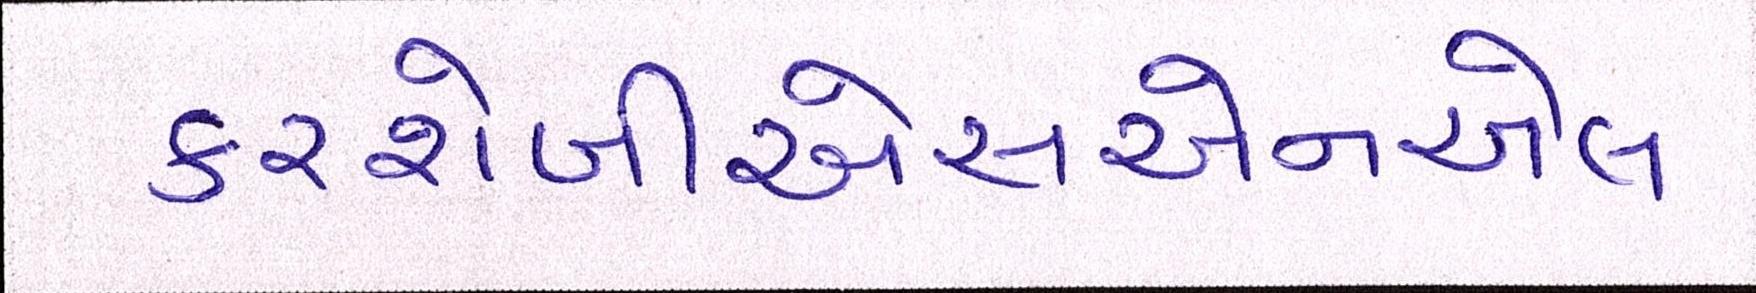 કરશેબીએસએનએલ